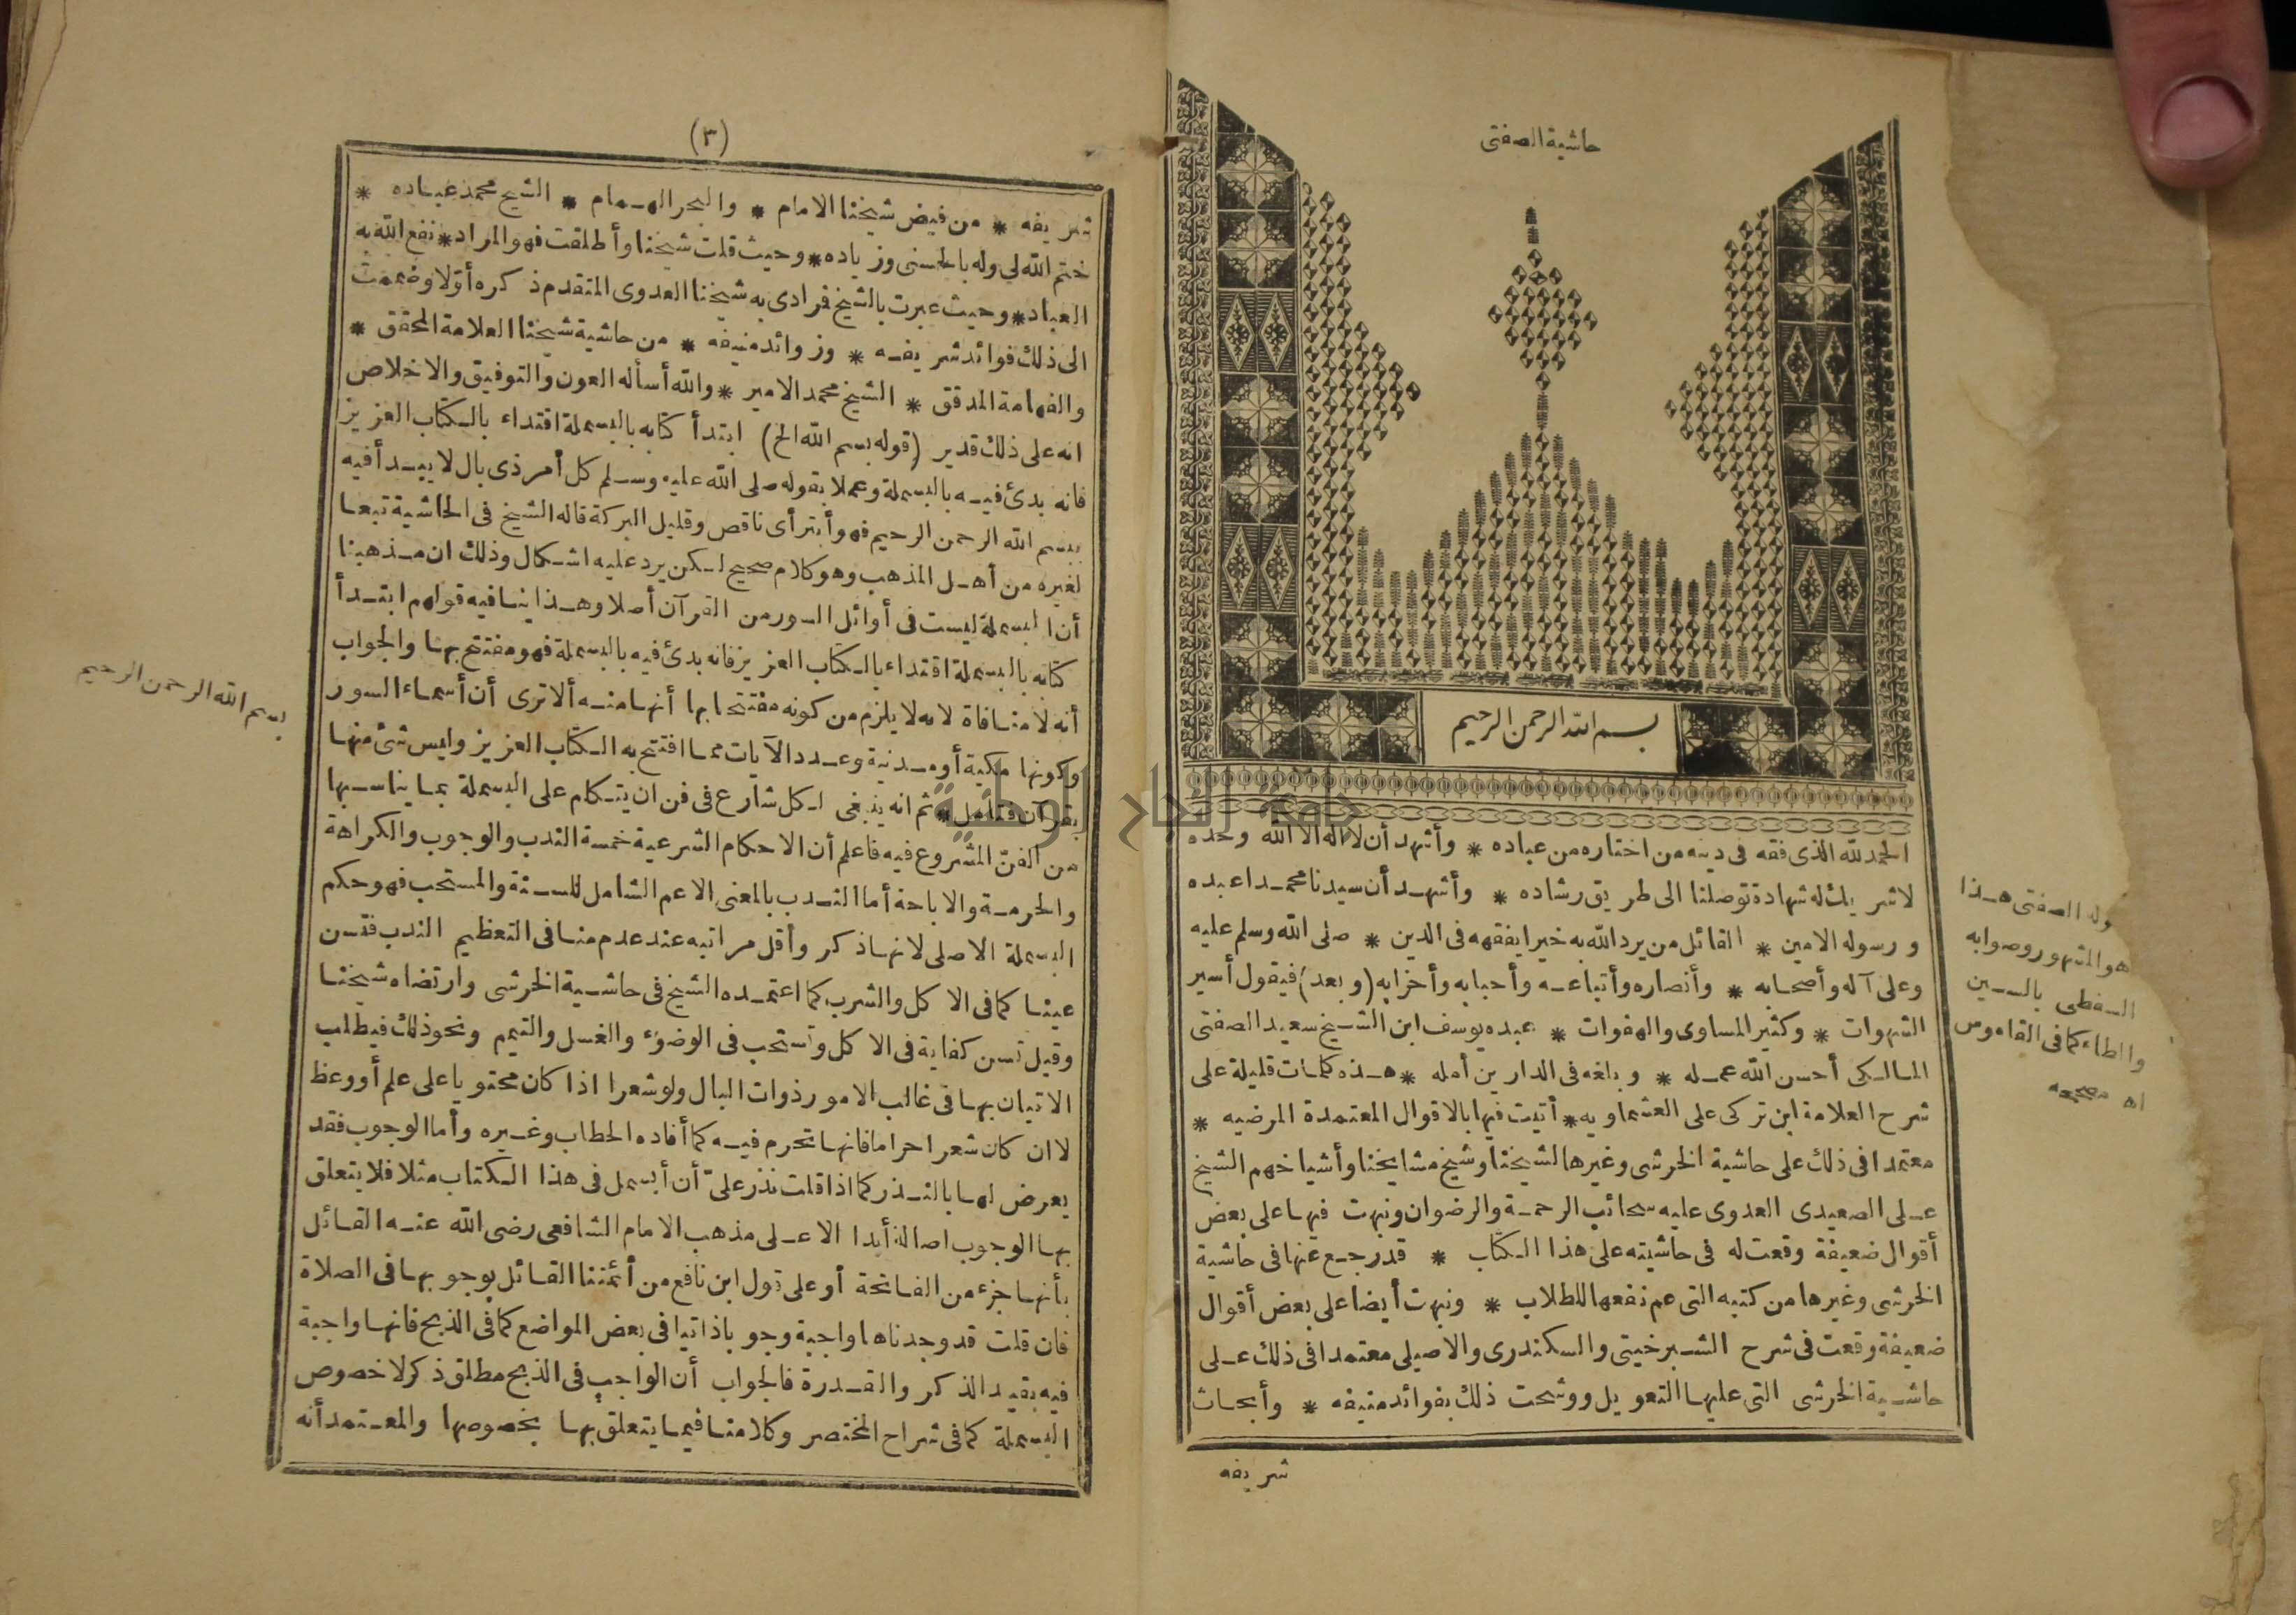 حاشية الصفتى
بسم الله الرحمن الرحيم
الحمد لله الذى فقه فى دينه من اختاره من عباده * وأشهد أن لا اله الا الله وحده
لا شريك له شهادة توصلنا الى طريق رشاده * وأشهد أن سيدنا محمدا عبده
ورسوله الامين * القائل من يرد الله به خيرا يفقهه فى الدين * صلى الله وسلم عليه
وعلى آله وأصحابه * وأنصاره وأتباعه وأحبابه وأحزابه (وبعد) فيقول أسير
الشهوات * وكثير المساوى والهفوات * عبده يوسف ابن الشيخ سعيد الصفتى
المالكى أحسن الله عمله * وبلغه فى الدارين أمله * هذه كلمات قليلة على
شرح العلامة ابن تركى على العشماويه * أتيت فيها بالاقوال المعتمدة المرضيه *
معتمدا فى ذلك على حاشية الخرشى وغيرها لشيخنا وشيخ مشايخنا وأشياخهم الشيخ
على الصعيدى العدوى عليه سحائب الرحمة والرضوان ونبهت فيها على بعض
أقوال ضعيفة وقعت له فى حاشيته على هذا الكتاب * قد رجع عنها فى حاشية
الخرشى وغيرها من كتبه التى عم نفعها للطلاب * ونبهت أيضا على بعض أقوال
ضعيفة وقعت فى شرح الشبرخيتى والسكندرى والاصيلى معتمدا فى ذلك على
حاشية الخرشى التى عليها التعويل ووشحت ذلك بفوائد منيفه * وأبحاث
شريفه
وله الصفتى هذا
هو المشهور وصوابه
السفطى بالسين
والطاء كما فى القاموس
اه مصححه
(٣)
شريفه * من فيض شيخنا الامام * والبحر الهمام * الشيخ محمد عباده *
ختم الله لى وله بالحسنى وزياده * وحيث قلت شيخنا وأطلقت فهو المراد * نفع الله به
العباد * وحيث عبرت بالشيخ فمرادى به شيخنا العدوى المتقدم ذكره أولا وضممت
الى ذلك فوائد شريفه * وزوائد منيفه * من حاشية شيخنا العلامة المحقق *
والفهامة المدقق * الشيخ محمد الامير * والله أسأله العون والتوفيق والاخلاص
انه على ذلك قدير (قوله بسم الله الخ) ابتدأ كتابه بالبسملة اقتداء بالكتاب العزيز
فانه بدئ فيه بالبسملة وعملا بقوله صلى الله عليه وسلم كل أمر ذى بال لا يبدأ فيه
ببسم الله الرحمن الرحيم فهو أبتر أى ناقص وقليل البركة قاله الشيخ فى الحاشية تبعا
لغيره من أهل المذهب وهو كلام صحيح لكن يرد عليه اشكال وذلك ان مذهبنا
أن البسملة ليست فى أوائل السور من القرآن أصلا وهذا ينافيه قولهم ابتدأ
كتابه بالبسملة اقتداء بالكتاب العزيز فانه بدئ فيه بالبسملة فهو مفتتح بها والجواب
أنه لا منافاة لانه لا يلزم من كونه مفتتحا بها أنها منه ألا ترى أن أسماء السور
وكونها مكية أو مدنية وعدد الآيات مما افتتح به الكتاب العزيز وليس شئ منها
بقرآن فتأمل * ثم انه ينبغى لكل شارع فى فن ان يتكلم على البسملة بما يناسبها
من الفن المشروع فيه فاعلم أن الاحكام الشرعية خمسة الندب والوجوب والكراهة
والحرمة والاباحة أما الندب بالمعنى الاعم الشامل للسنة والمستحب فهو حكم
البسملة الاصلى لانها ذكر وأقل مراتبه عند عدم منافى التعظيم الندب فتسن
عينا كما فى الاكل والشرب كما اعتمده الشيخ فى حاشية الخرشى وارتضاه شيخنا
وقيل تسن كفاية فى الاكل وتستحب فى الوضوء والغسل والتيمم ونحو ذلك فيطلب
الاتيان بها فى غالب الامور ذوات البال ولو شعرا اذا كان محتويا على علم أو وعظ
لا ان كان شعرا حراما فانها تحرم فيه كما أفاده الحطاب وغيره وأما الوجوب فقد
يعرض لها بالنذر كما اذا قلت نذر علىّ أن أبسمل فى هذا الكتاب مثلا فلا يتعلق
بها الوجوب اصالة أبدا الا على مذهب الامام الشافعى رضى الله عنه القائل
بأنها جزء من الفاتحة أو على قول ابن نافع من أئمتنا القائل بوجوبها فى الصلاة
فان قلت قد وجدناها واجبة وجوبا ذاتيا فى بعض المواضع كما فى الذبح فانها واجبة
فيه بقيد الذكر والقدرة فالجواب أن الواجب فى الذبح مطلق ذكر لا خصوص
البسملة كما فى شراح المختصر وكلامنا فيما يتعلق بها بخصوصها والمعتمد أنه
بسم الله الرحمن الرحيم
جامعة النجاح الوطنية